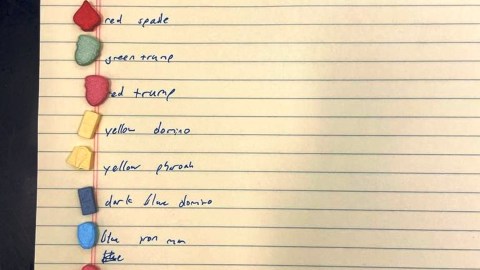 red spade
green trump
red trump
yellow domino
yellow pharoah
dark blue domino
blue iron man